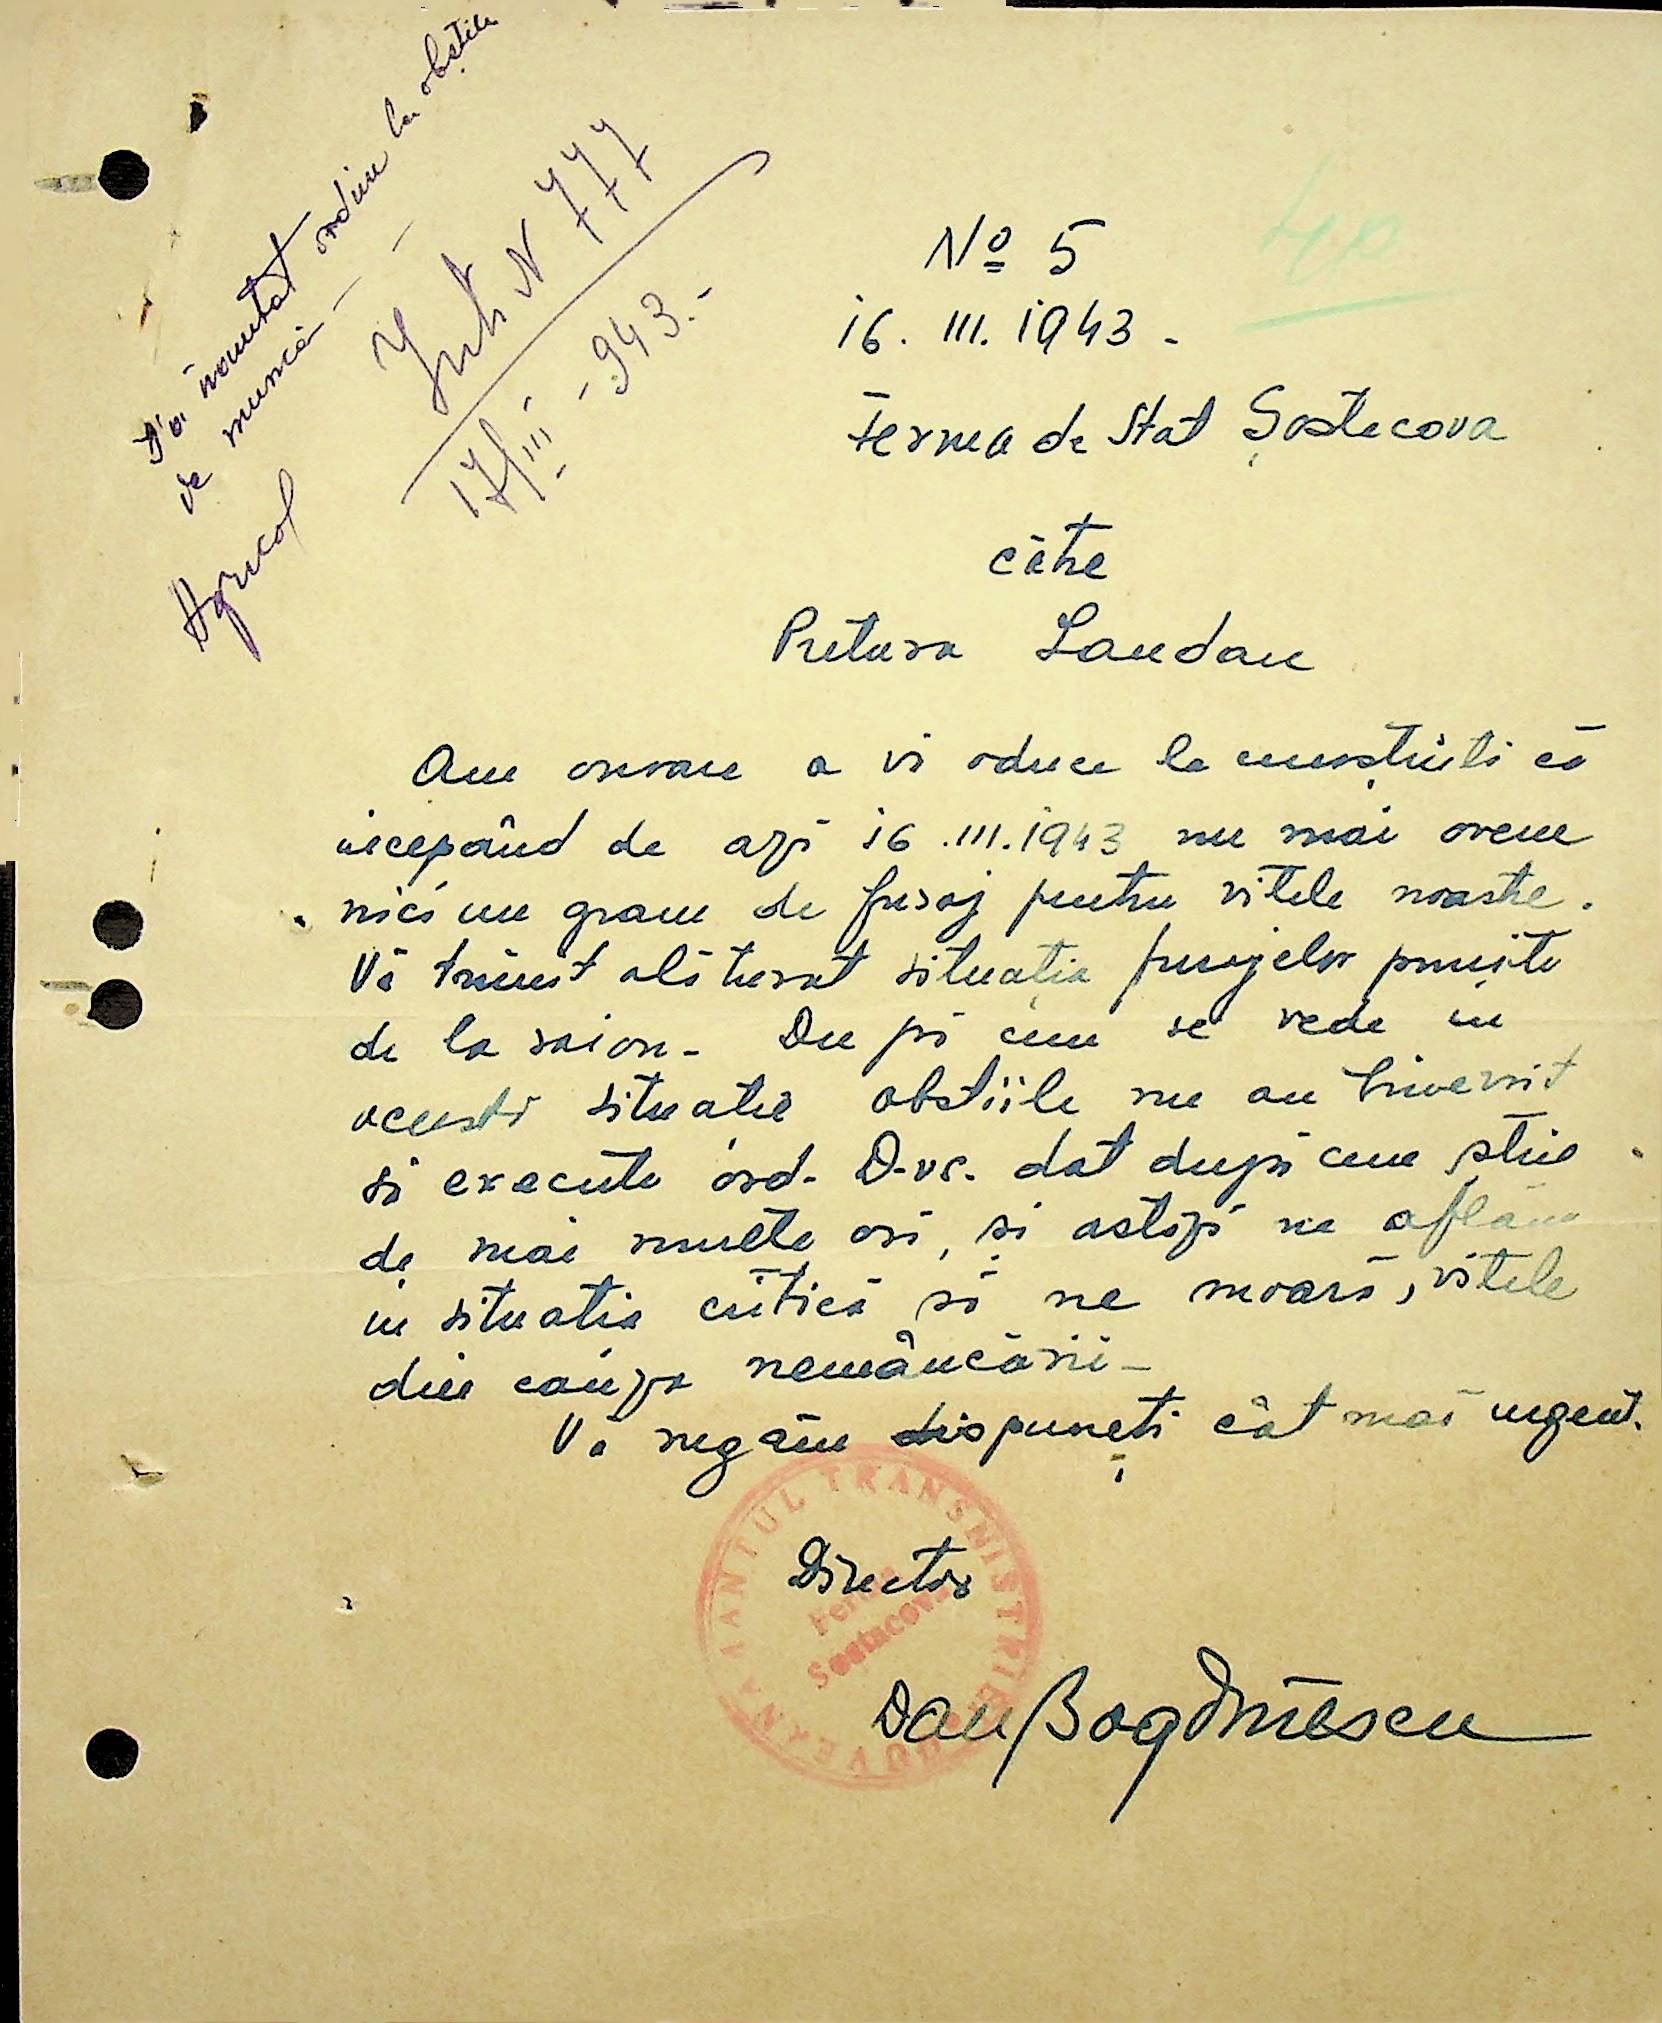 S'a inaintat ordin la obștiile
de muncă - -
Agricol
Intr. N 777
17/III - 943.-
40
Nº 5
16. III. 1943 -
Ferma de Stat Șostecova
către
Pretura Landau
Am onoare a vă aduce la cunoștință că
incepând de azi 16.III.1943 nu mai avem
nici un gram de furaj pentru vitele noastre.
Vă trimit alăturat situația furajelor primite
de la raion - După cum se vede in
această situatie obstiile nu au binevoit
să execute ord. D-vs. dat după cum știu
de mai multe ori, și astăzi ne aflăm
in situatia critică să ne moară, vitele
din cauza nemâncării -
Vă rugăm dispuneți cât mai urgent.
GUVERNĂMÂNTUL TRANSNISTRIEI
Ferma
Sostacova
Director
Dan Bogdănescu